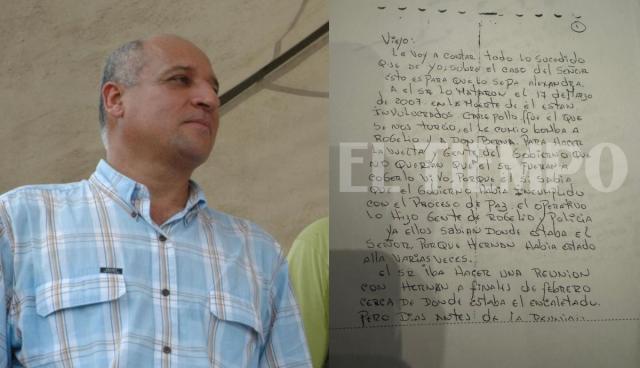 1
Viejo:
Le voy a contar todo lo sucedido
que de yo, sobre el caso del señor
esto es para que lo sepa Alexandra.
A el Sr lo mataron el 17 de
2007. en la muerte de el estan
involucrados. Carepollo, fue el que
se nos torco, el le comio a
Rogelio y a Don Berna. Para hacer
la vuelta y gente del gobierno que
no querian que el Sr fueran a
cogerlo vivo, porque el si sabia
que el gobierno habia incumplido
con el proceso de paz. el operativo
lo hijo gente de Rogelio y policia
ya ellos sabian donde estaba el
señor porque Hernan habia estado
alla varias veces.
el Sr iba hacer una reunion
con Hernan a finales de febrero
cerca de donde estaba el encaletado.
pero dias antes de la reunion
EL TIEMPO